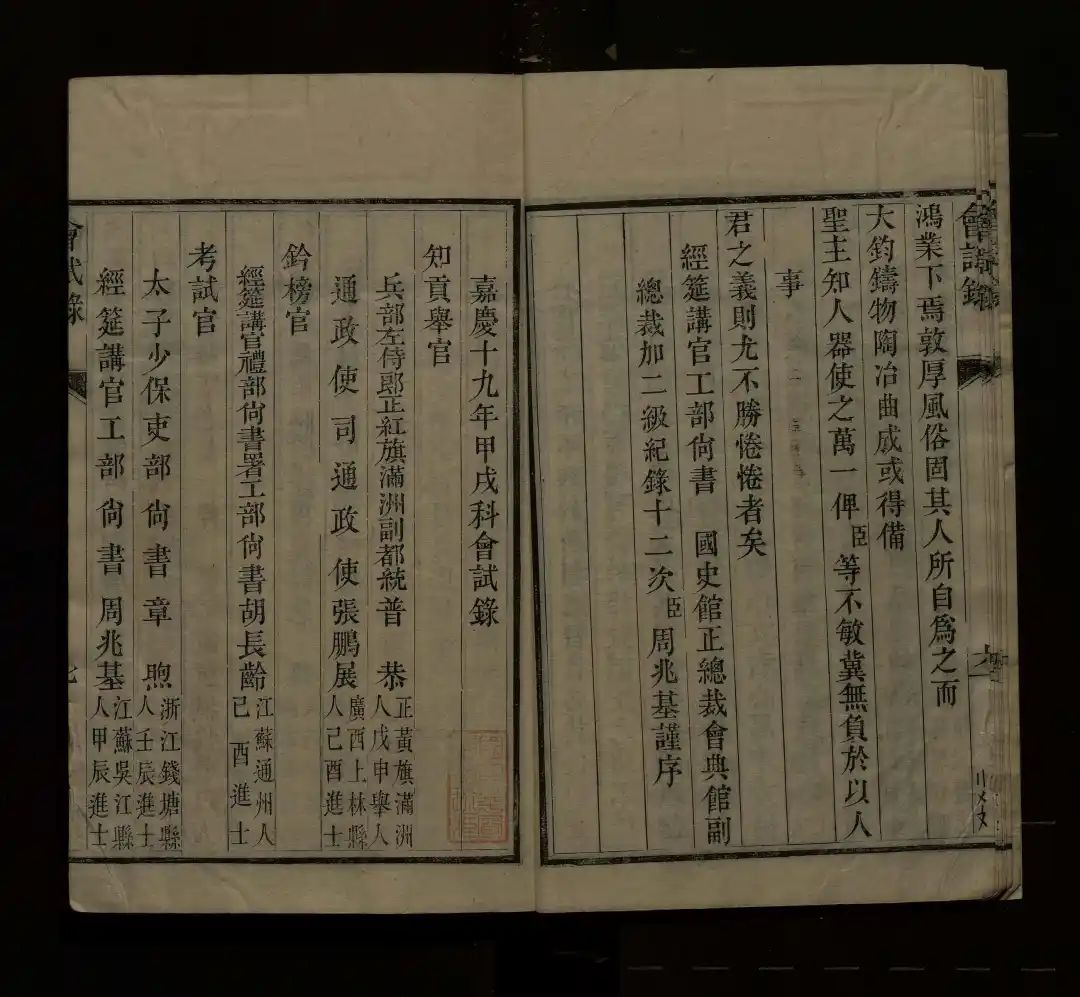 會試錄
鴻業下焉敦厚風俗固其人所自爲之而
大鈞鑄物陶冶曲成或得備
聖主知人器使之萬一俾臣等不敏冀無負於以人
事
君之義則尤不勝惓惓者矣
經筵講官工部尙書 國史館正總裁會典館副
總裁加二級紀錄十二次臣周兆基謹序
六
嘉慶十九年甲戌科會試錄
知貢舉官
兵部左侍郎正紅旗滿洲副都統普 恭 正黃旗滿洲人戊申舉人
通政使司通政使張鵬展 廣西上林縣人己酉進士
鈐榜官
經筵講官禮部尙書署工部尙書胡長齡 江蘇通州人己酉進士
考試官
太子少保吏部尙書章 煦 浙江錢塘縣人壬辰進士
經筵講官工部尙書周兆基 江蘇吳江縣人甲辰進士
會試錄
七